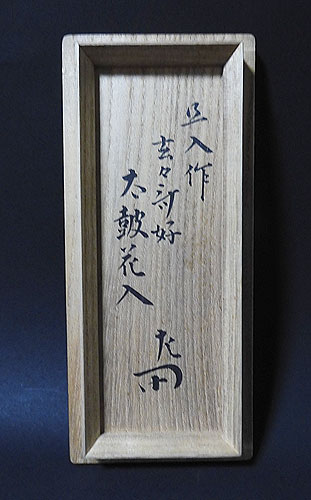 旦入作
玄々斎好
太鼓花入